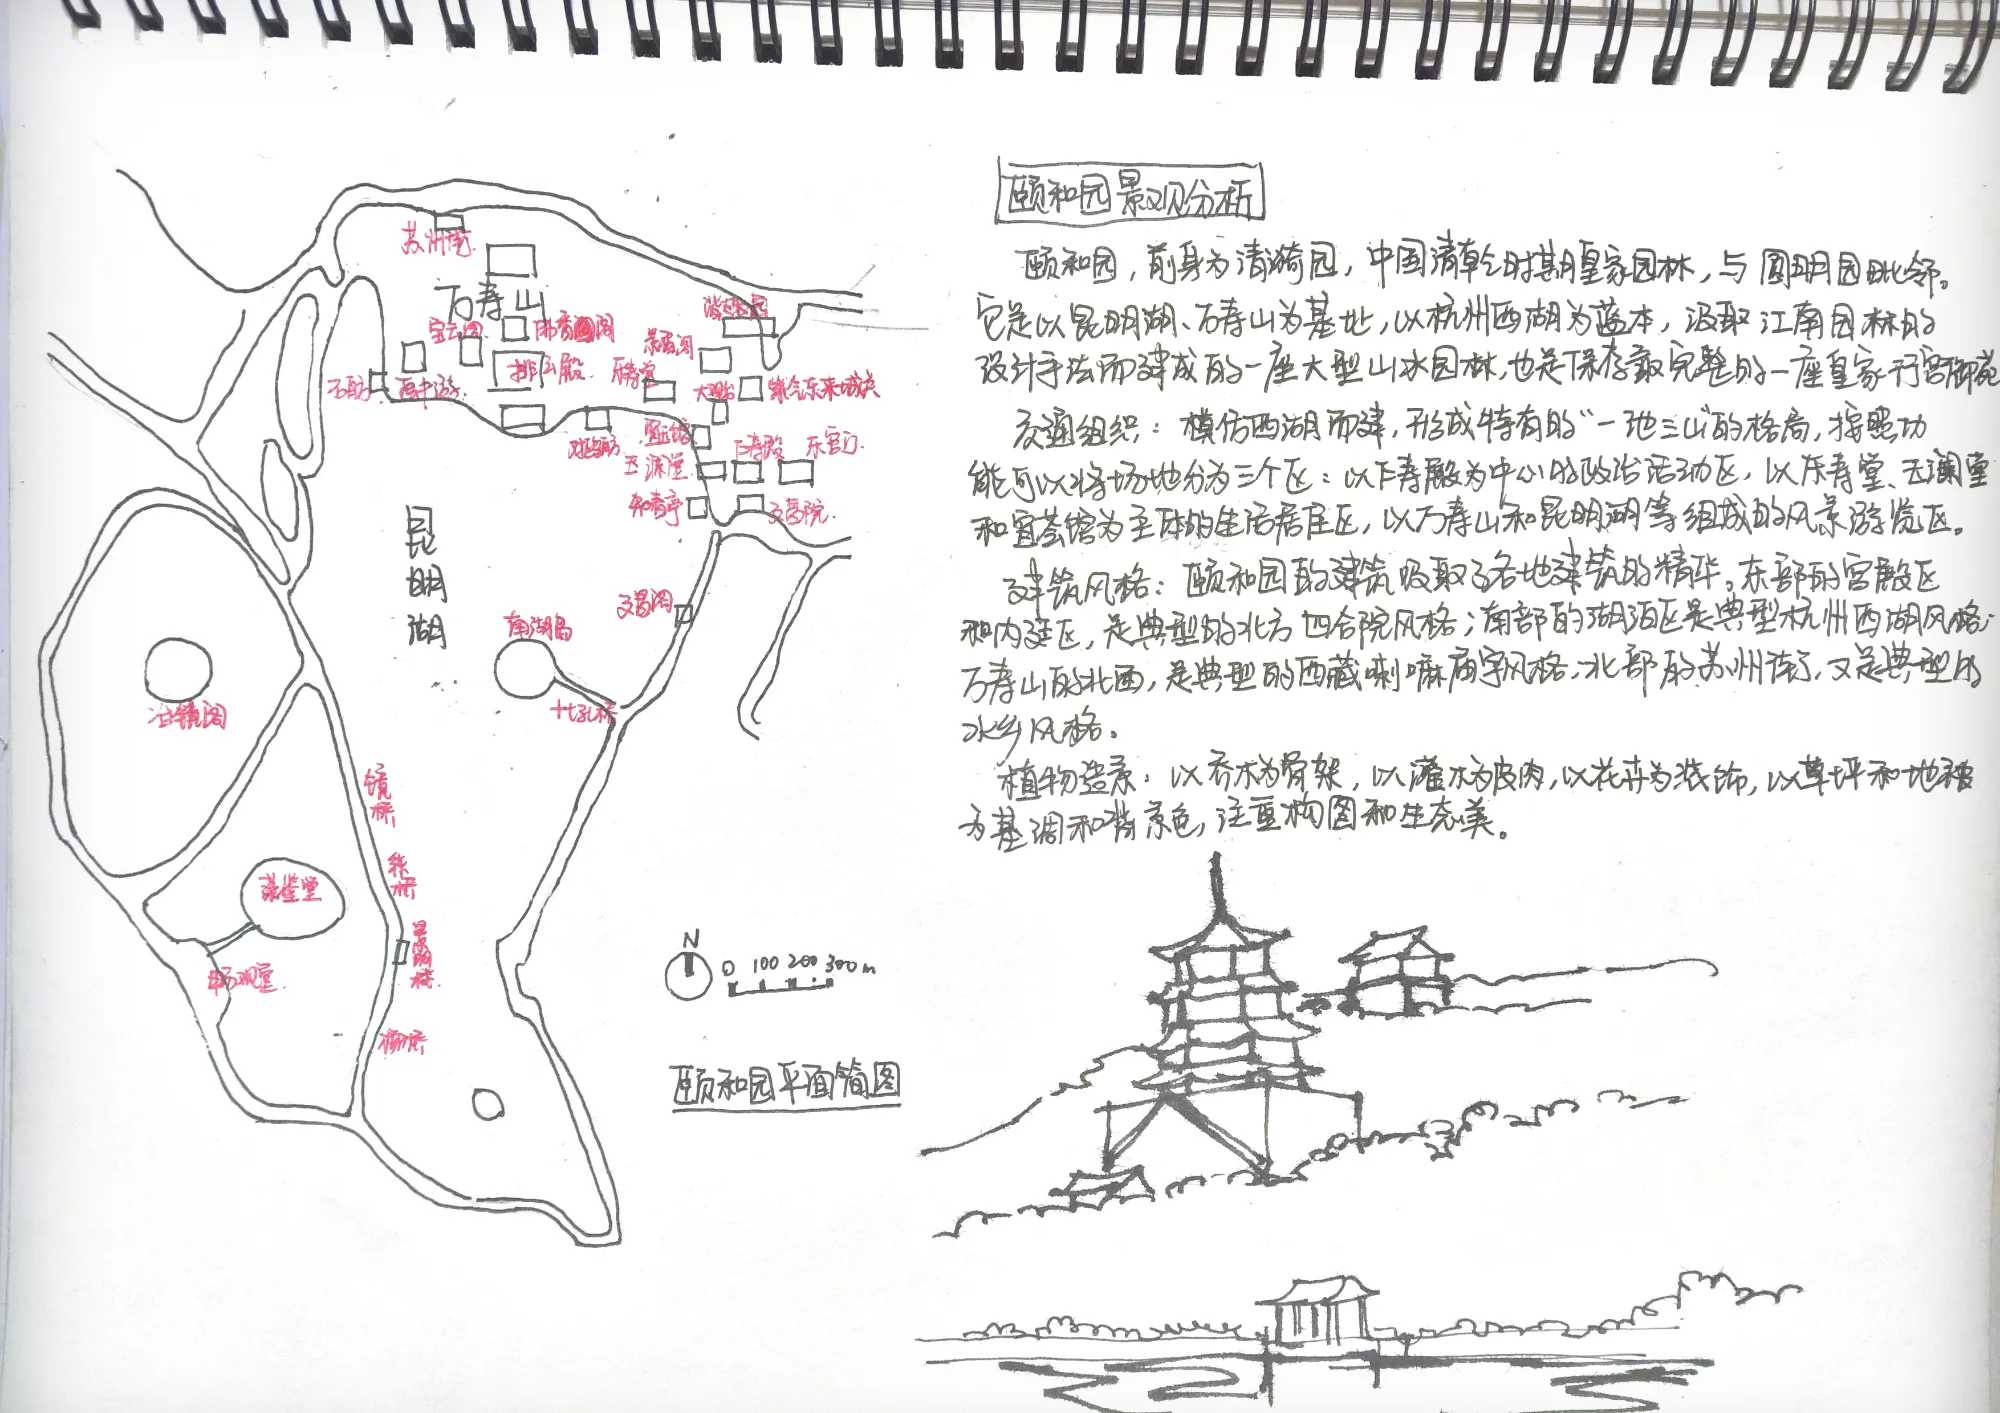 苏州街
万寿山
宝云阁
佛香阁
谐趣园
景福阁
石舫
画中游
排云殿
乐寿堂
大戏台
紫气东来城关
对鸥舫
宜芸馆
玉澜堂
仁寿殿
东宫门
知春亭
文昌院
昆明湖
文昌阁
南湖岛
十七孔桥
治镜阁
镜桥
练桥
藻鉴堂
畅观堂
柳桥
N
0 100 200 300m
颐和园平面简图
颐和园景观分析
颐和园，前身为清漪园，中国清乾时期皇家园林，与圆明园毗邻。
它是以昆明湖、万寿山为基址，以杭州西湖为蓝本，汲取江南园林的
设计手法而建成的一座大型山水园林，也是保存最完整的一座皇家行宫御苑
交通组织：模仿西湖而建，形成特有的“一池三山”的格局，按照功
能可以将场地分为三个区：以仁寿殿为中心的政治活动区，以乐寿堂、玉澜堂
和宜芸馆为主体的生活居住区，以万寿山和昆明湖等组成的风景游览区。
建筑风格：颐和园的建筑吸取了各地建筑的精华。东部的宫殿区
和内廷区，是典型的北方四合院风格；南部的湖泊区是典型杭州西湖风格；
万寿山的北面，是典型的西藏喇嘛庙宇风格；北部的苏州街，又是典型的
水乡风格。
植物造景：以乔木为骨架，以灌木为皮肉，以花卉为装饰，以草坪和地被
为基调和背景色，注重构图和生态美。